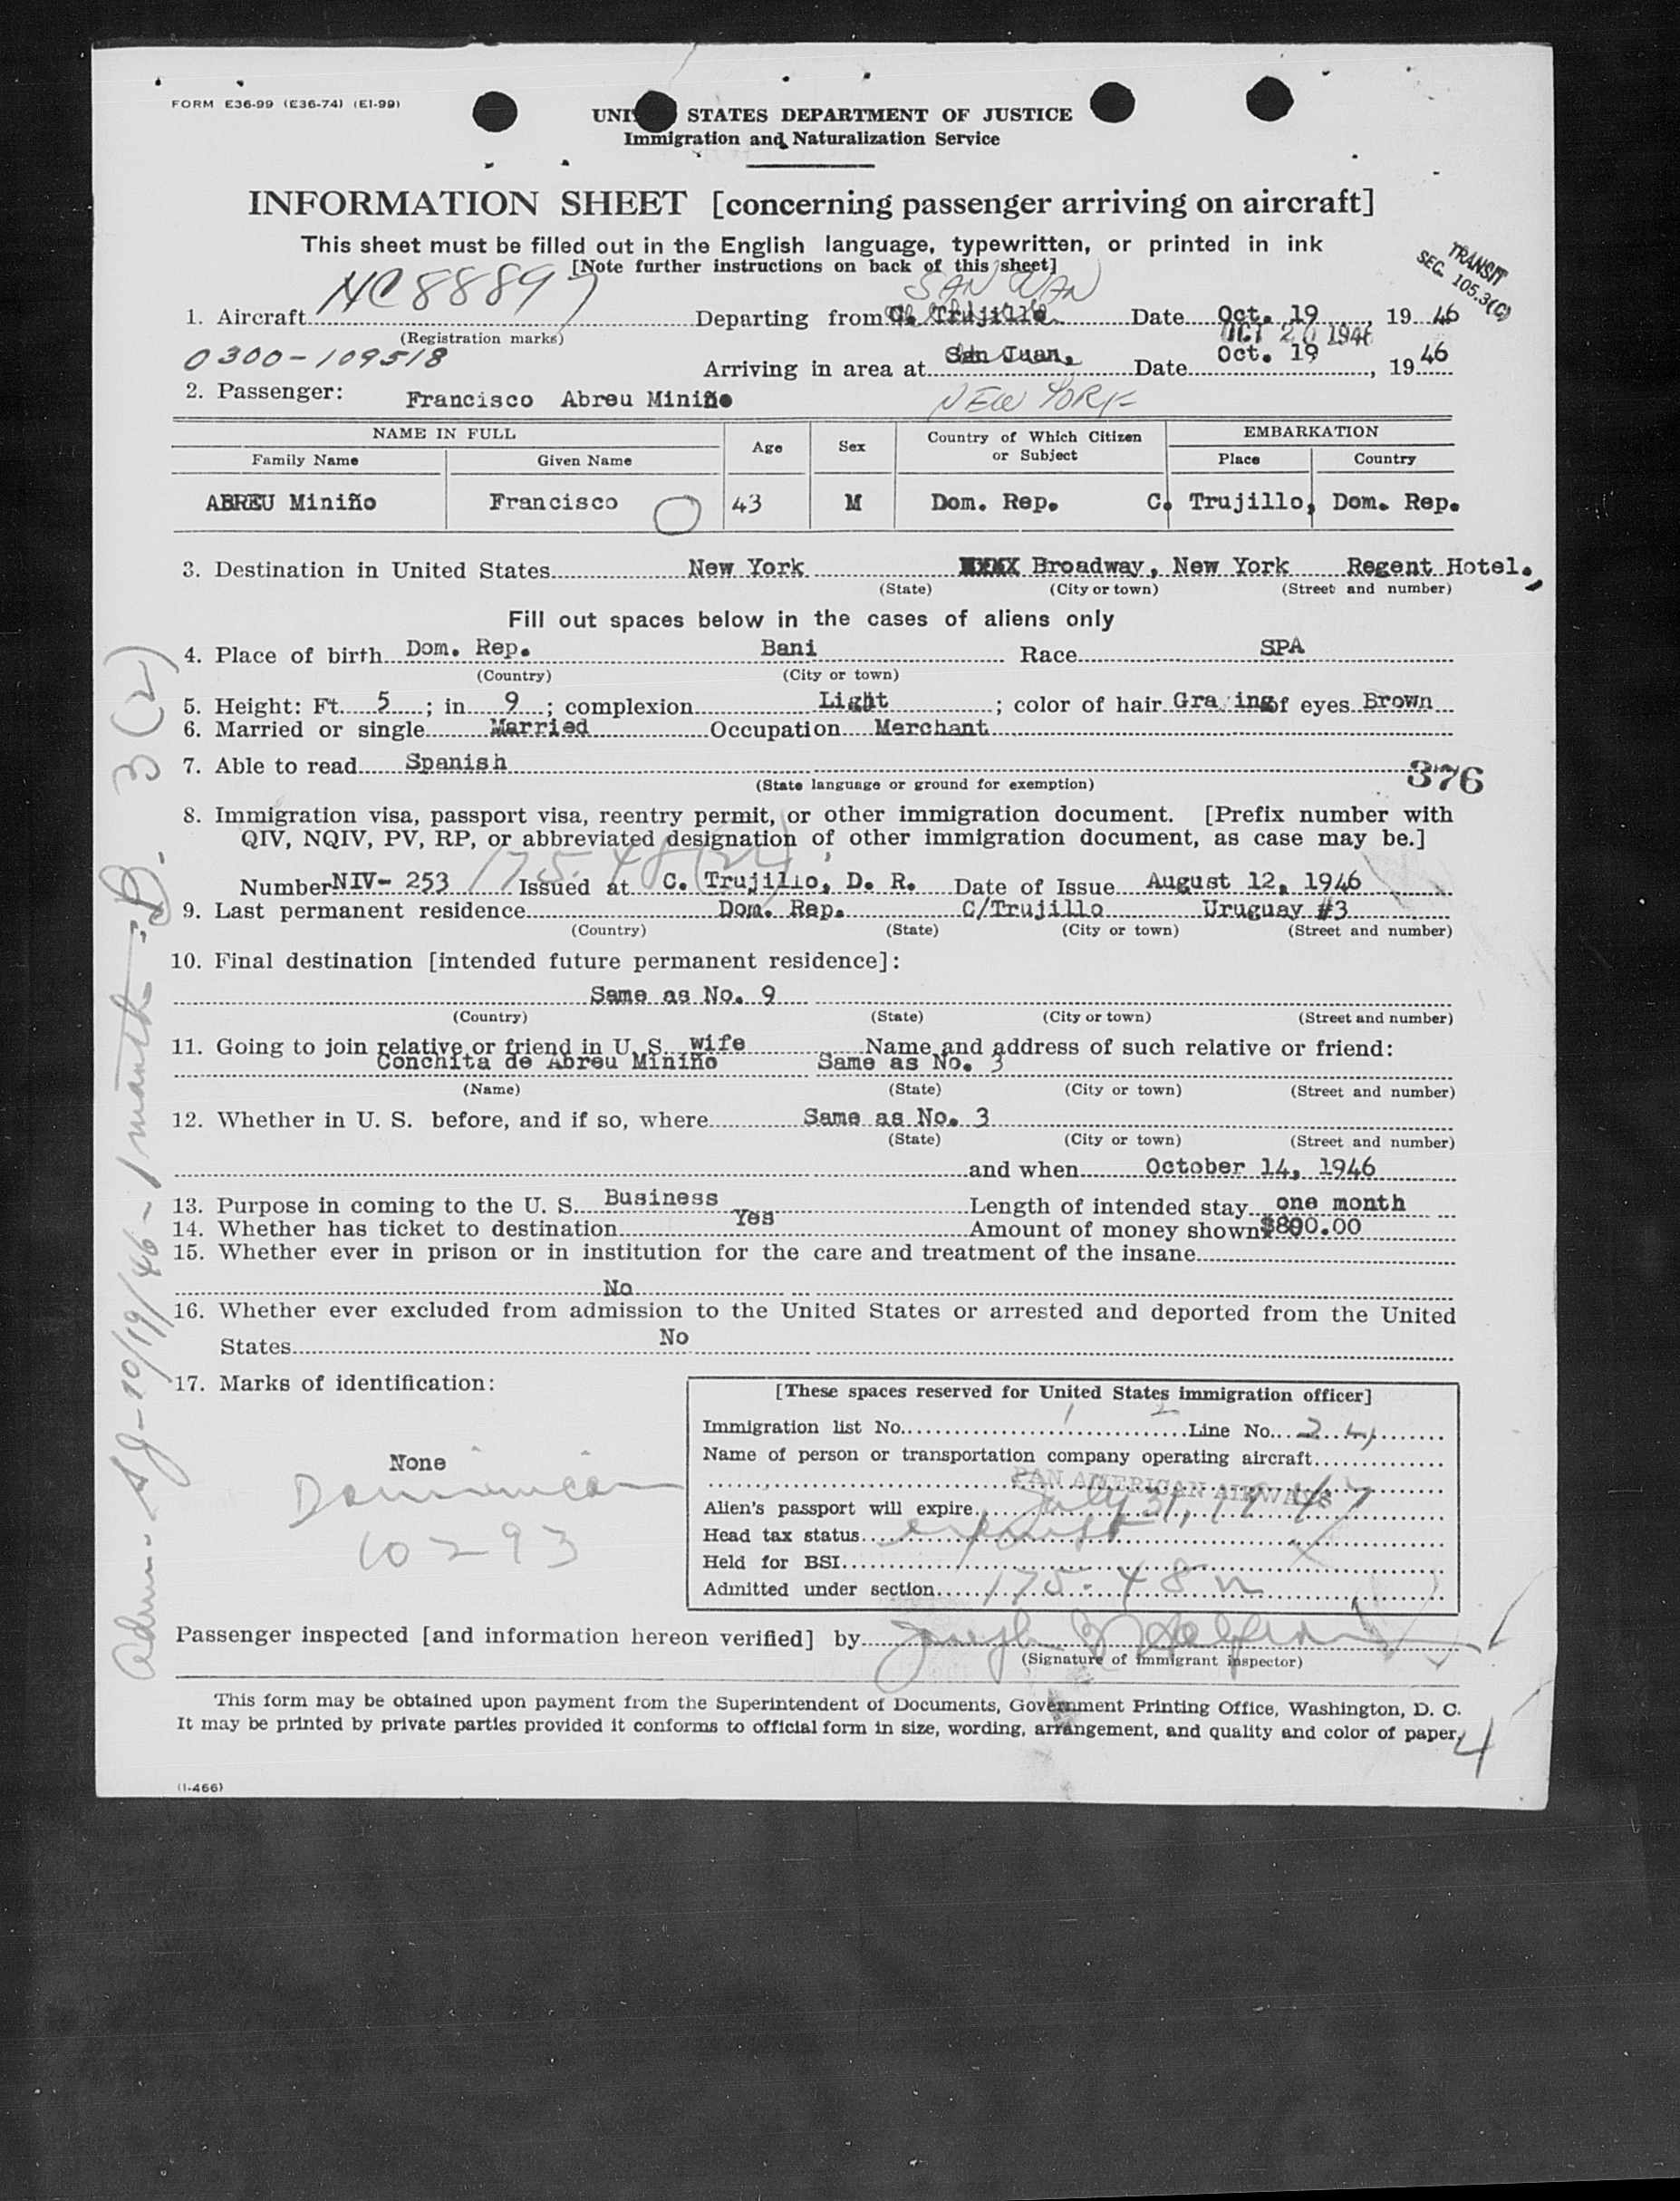 FORM E36-99 (E36-74) (E1-99)
UNI STATES DEPARTMENT OF JUSTICE
Immigration and Naturalization Service
INFORMATION SHEET [concerning passenger arriving on aircraft]
This sheet must be filled out in the English language, typewritten, or printed in ink
[Note further instructions on back of this sheet]
TRANSIT
SEC. 105.3(C)
SAN JUAN
1. Aircraft NC 88899 Departing from C. Trujillo Date Oct. 19, 1946
(Registration marks) OCT 20 1946
0300-109518 Arriving in area at San Juan, Date Oct. 19, 1946
2. Passenger: Francisco Abreu Miniño NEW YORK
NAME IN FULL Age Sex Country of Which Citizen or Subject EMBARKATION
Family Name Given Name Place Country
ABREU Miniño Francisco 43 M Dom. Rep. C. Trujillo, Dom. Rep.
3. Destination in United States New York Broadway, New York Regent Hotel.,
(State) (City or town) (Street and number)
Fill out spaces below in the cases of aliens only
4. Place of birth Dom. Rep. Bani Race SPA
(Country) (City or town)
5. Height: Ft. 5; in. 9; complexion Light; color of hair Gra ing of eyes Brown
6. Married or single Married Occupation Merchant
7. Able to read Spanish
(State language or ground for exemption)
376
8. Immigration visa, passport visa, reentry permit, or other immigration document. [Prefix number with
QIV, NQIV, PV, RP, or abbreviated designation of other immigration document, as case may be.]
175.48(2)
Number NIV- 253 Issued at C. Trujillo, D. R. Date of Issue August 12, 1946
9. Last permanent residence Dom. Rep. C/Trujillo Uruguay #3
(Country) (State) (City or town) (Street and number)
10. Final destination [intended future permanent residence]:
Same as No. 9
(Country) (State) (City or town) (Street and number)
11. Going to join relative or friend in U. S. wife Name and address of such relative or friend:
Conchita de Abreu Miniño Same as No. 3
(Name) (State) (City or town) (Street and number)
12. Whether in U. S. before, and if so, where Same as No. 3
(State) (City or town) (Street and number)
and when October 14, 1946
13. Purpose in coming to the U. S. Business Length of intended stay one month
14. Whether has ticket to destination Yes Amount of money shown $800.00
15. Whether ever in prison or in institution for the care and treatment of the insane
No
16. Whether ever excluded from admission to the United States or arrested and deported from the United
States No
17. Marks of identification:
None
Dominican
10293
[These spaces reserved for United States immigration officer]
Immigration list No. 1 2 Line No. 24
Name of person or transportation company operating aircraft
PAN AMERICAN AIRWAYS
Alien's passport will expire July 31, 1947
Head tax status exempt
Held for BSI
Admitted under section 175.48
Passenger inspected [and information hereon verified] by Joseph
(Signature of immigrant inspector)
This form may be obtained upon payment from the Superintendent of Documents, Government Printing Office, Washington, D. C.
It may be printed by private parties provided it conforms to official form in size, wording, arrangement, and quality and color of paper.
4
(I-466)
Adm. SJ-10/19/46 - 1 month - B. 3(2)